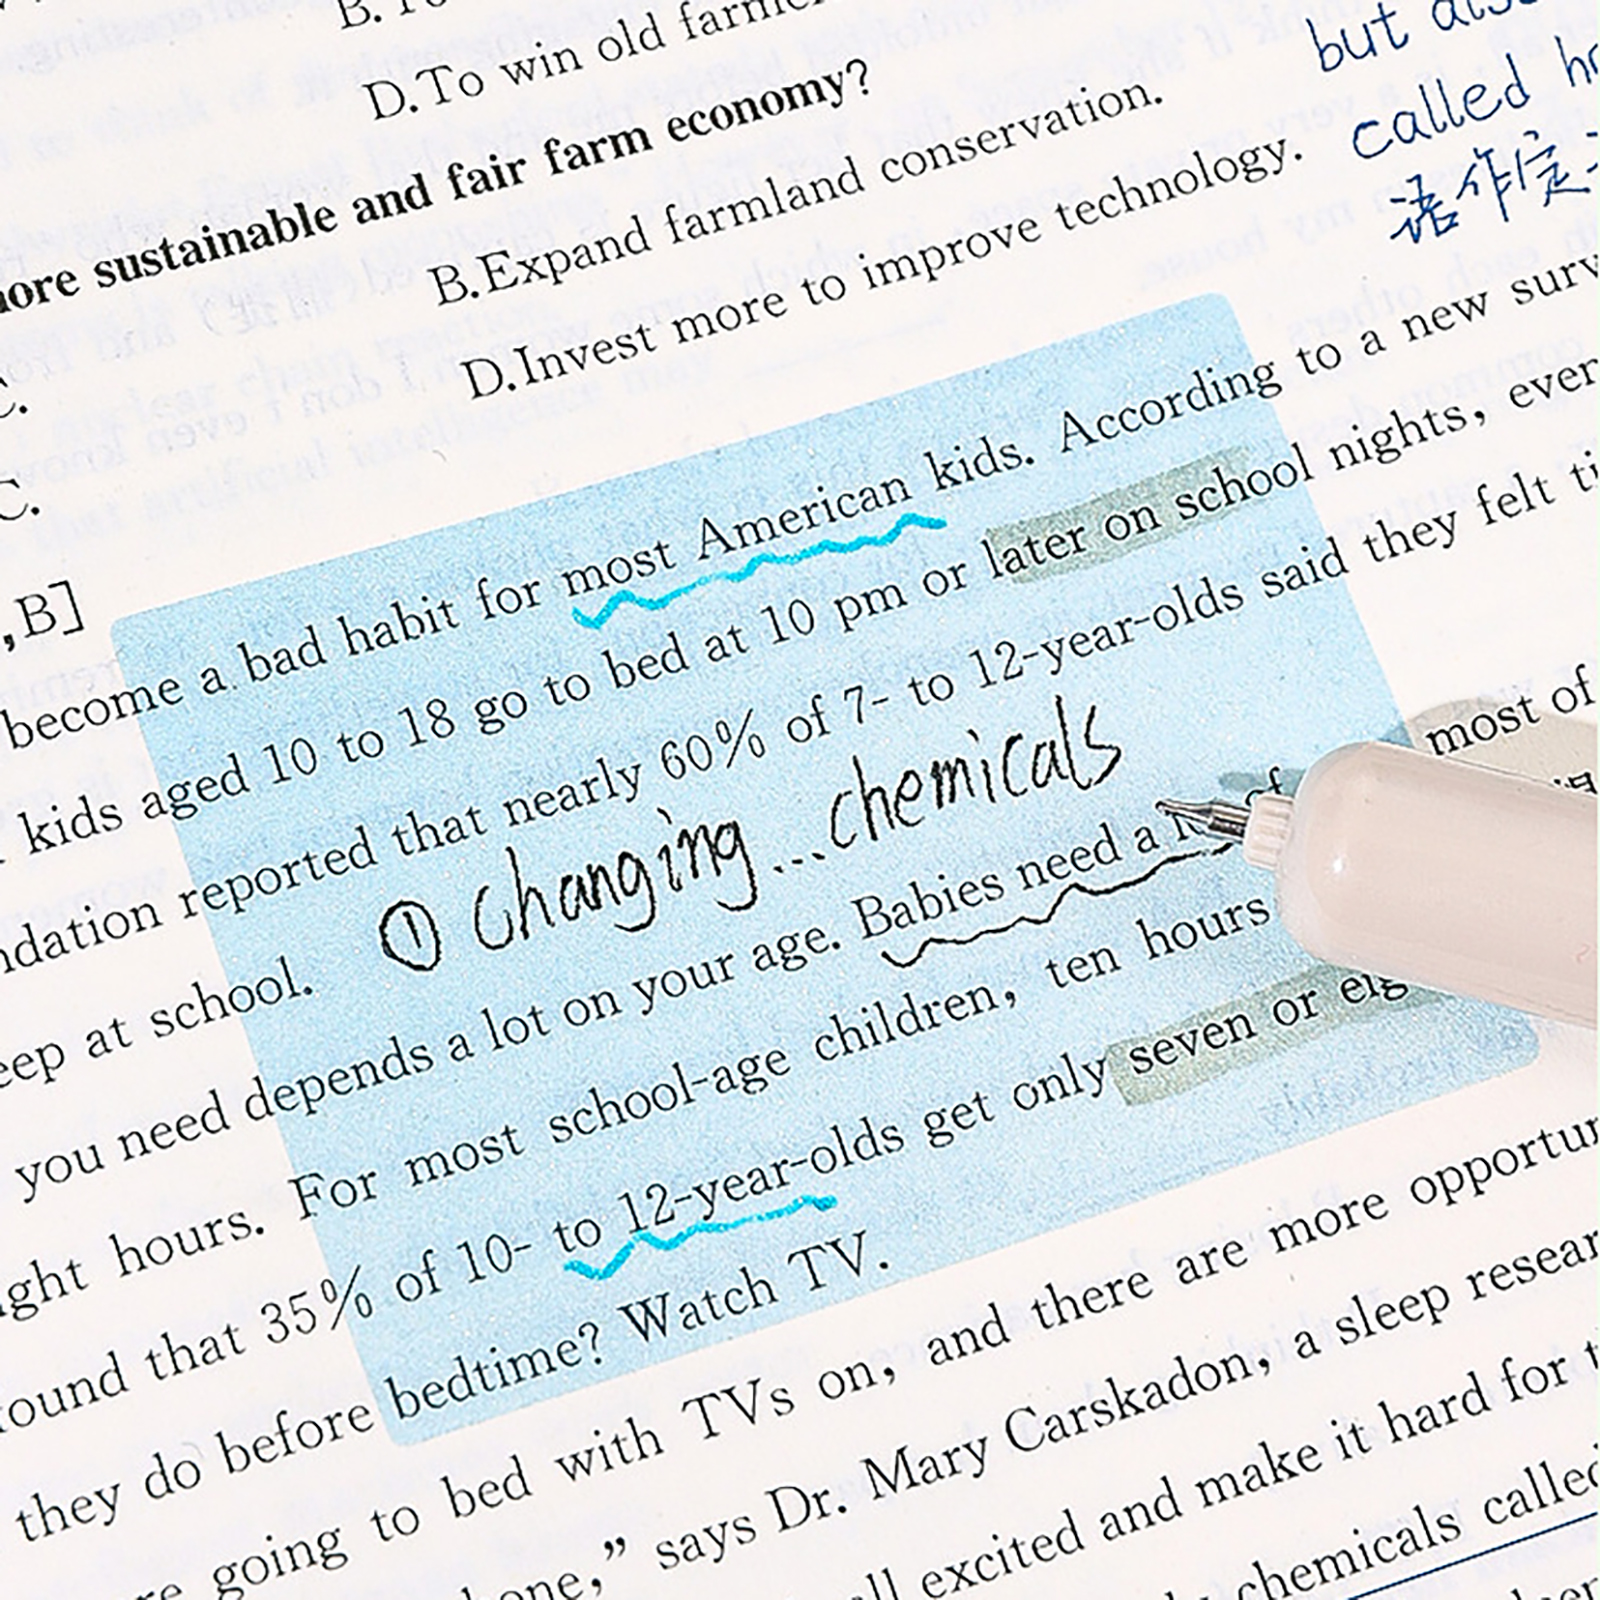 B. To
D.To win old farme
more sustainable and fair farm economy?
B.Expand farmland conservation.
D.Invest more to improve technology.
but also
called
语作定
C.
C.
,B]
become a bad habit for most American kids. According to a new surv
kids aged 10 to 18 go to bed at 10 pm or later on school nights, even
ndation reported that nearly 60% of 7- to 12-year-olds said they felt ti
eep at school.
① Changing...chemicals
you need depends a lot on your age. Babies need a of most of
ght hours. For most school-age children, ten hours
ound that 35% of 10- to 12-year-olds get only seven or eig
they do before bedtime? Watch TV.
re going to bed with TVs on, and there are more opportun
hone,” says Dr. Mary Carskadon, a sleep resear
all excited and make it hard for t
chemicals called